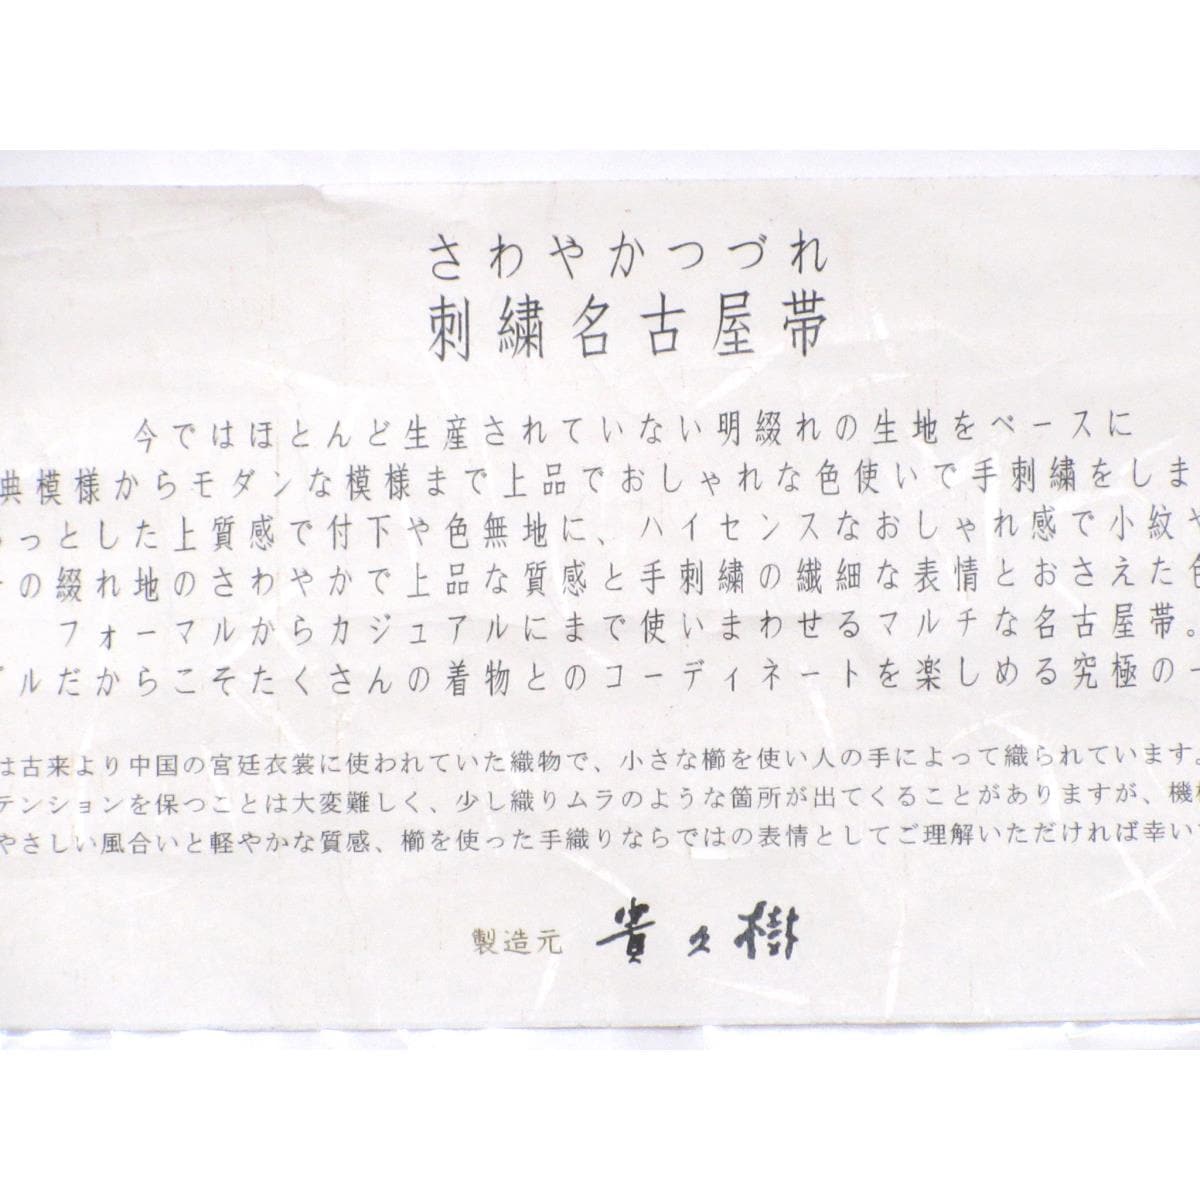 さわやかつづれ
刺繍名古屋帯
今ではほとんど生産されていない明綴れの生地をベースに
典模様からモダンな模様まで上品でおしゃれな色使いで手刺繍をしま
っとした上質感で付下や色無地に、ハイセンスなおしゃれ感で小紋や
の綴れ地のさわやかで上品な質感と手刺繍の繊細な表情とおさえた色
フォーマルからカジュアルにまで使いまわせるマルチな名古屋帯。
ルだからこそたくさんの着物とのコーディネートを楽しめる究極の一
は古来より中国の宮廷衣裳に使われていた織物で、小さな櫛を使い人の手によって織られています。
テンションを保つことは大変難しく、少し織りムラのような箇所が出てくることがありますが、機械
やさしい風合いと軽やかな質感、櫛を使った手織りならではの表情としてご理解いただければ幸い
製造元 貴久樹